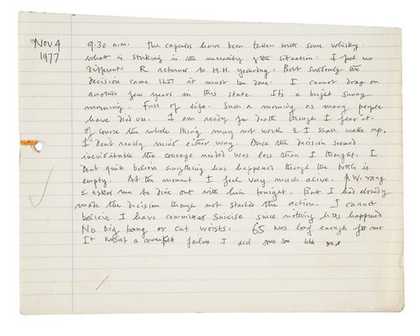 Nov 4
1977
9.30 a.m. The capsules have been taken with some whisky.
What is striking is the unreality of the situation. I feel no
different. R returned to H.H. yesterday. But suddenly the
decision came that it must be done. I cannot drag on
another few years in this state. It's a bright sunny
morning. Full of life. Such a morning as many people
have died on. I am ready for death though I fear it.
Of course the whole thing may not work & I shall wake up.
I don't really mind either way. Once the decision seems
inevitable the courage needed was less than I thought. I
don't quite believe anything has happened though the bottle is
empty. At the moment I feel very much alive. P.W. rang
& asked me to dine out with him tonight. But I had already
made the decision though not started the action. I cannot
believe I have committed suicide since nothing has happened
No big bang or cut wrists. 65 was long enough for me
It wasn't a complete failure I did some